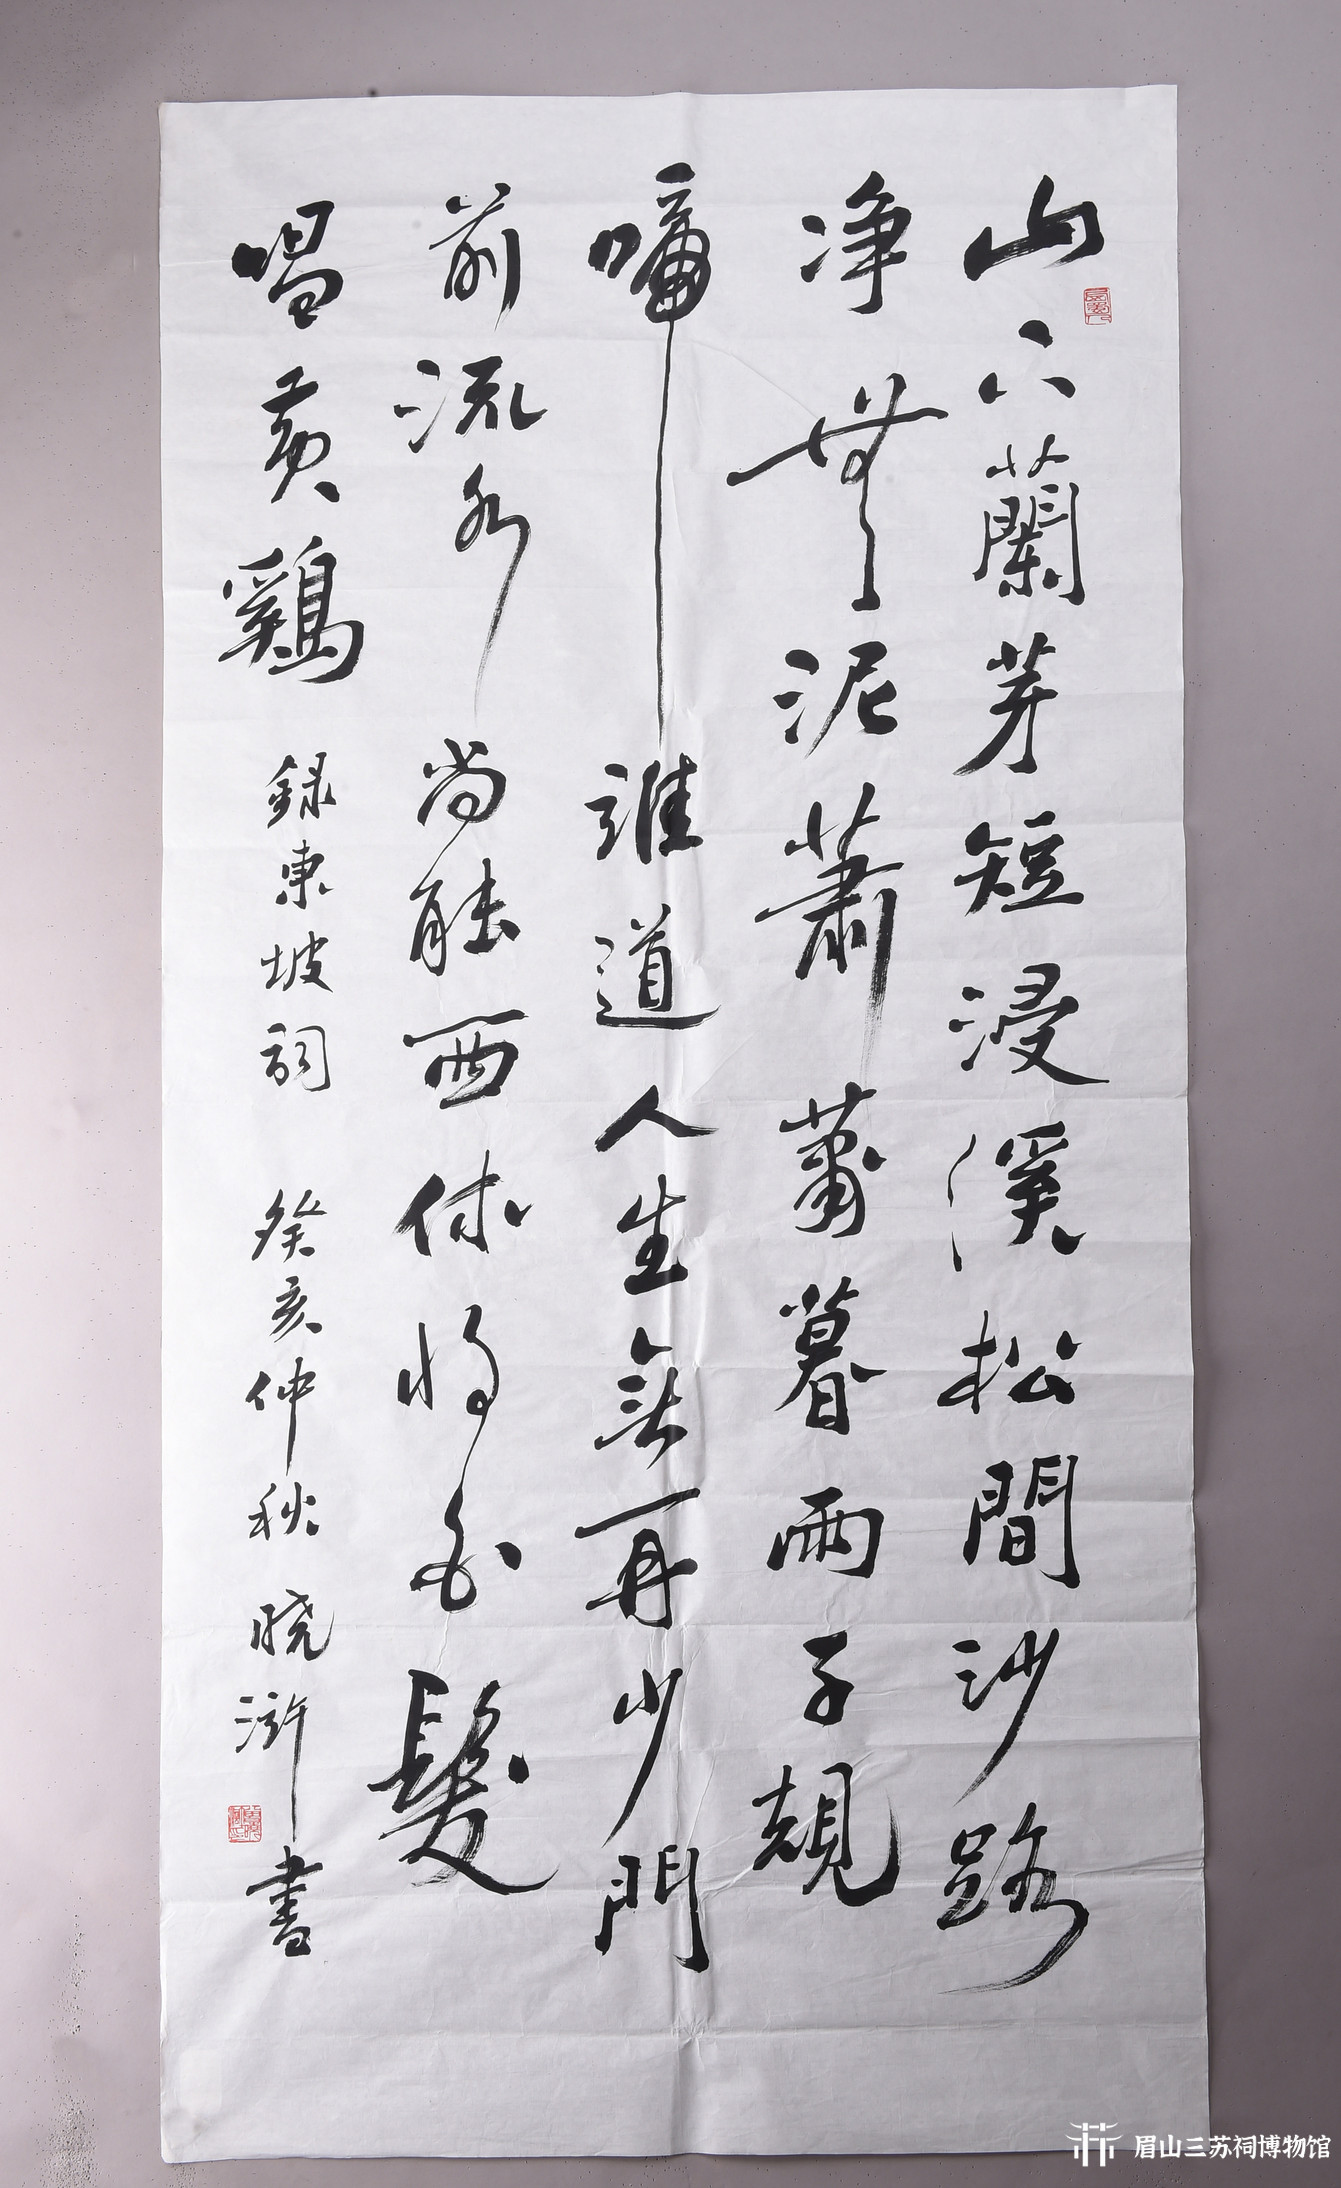 山下蘭芽短浸溪松間沙路
净無泥蕭蕭暮雨子規
啼誰道人生無再少門
前流水尚能西休將白髮
唱黄鷄 録東坡詞 癸亥仲秋 晓滸書
眉山三苏祠博物馆